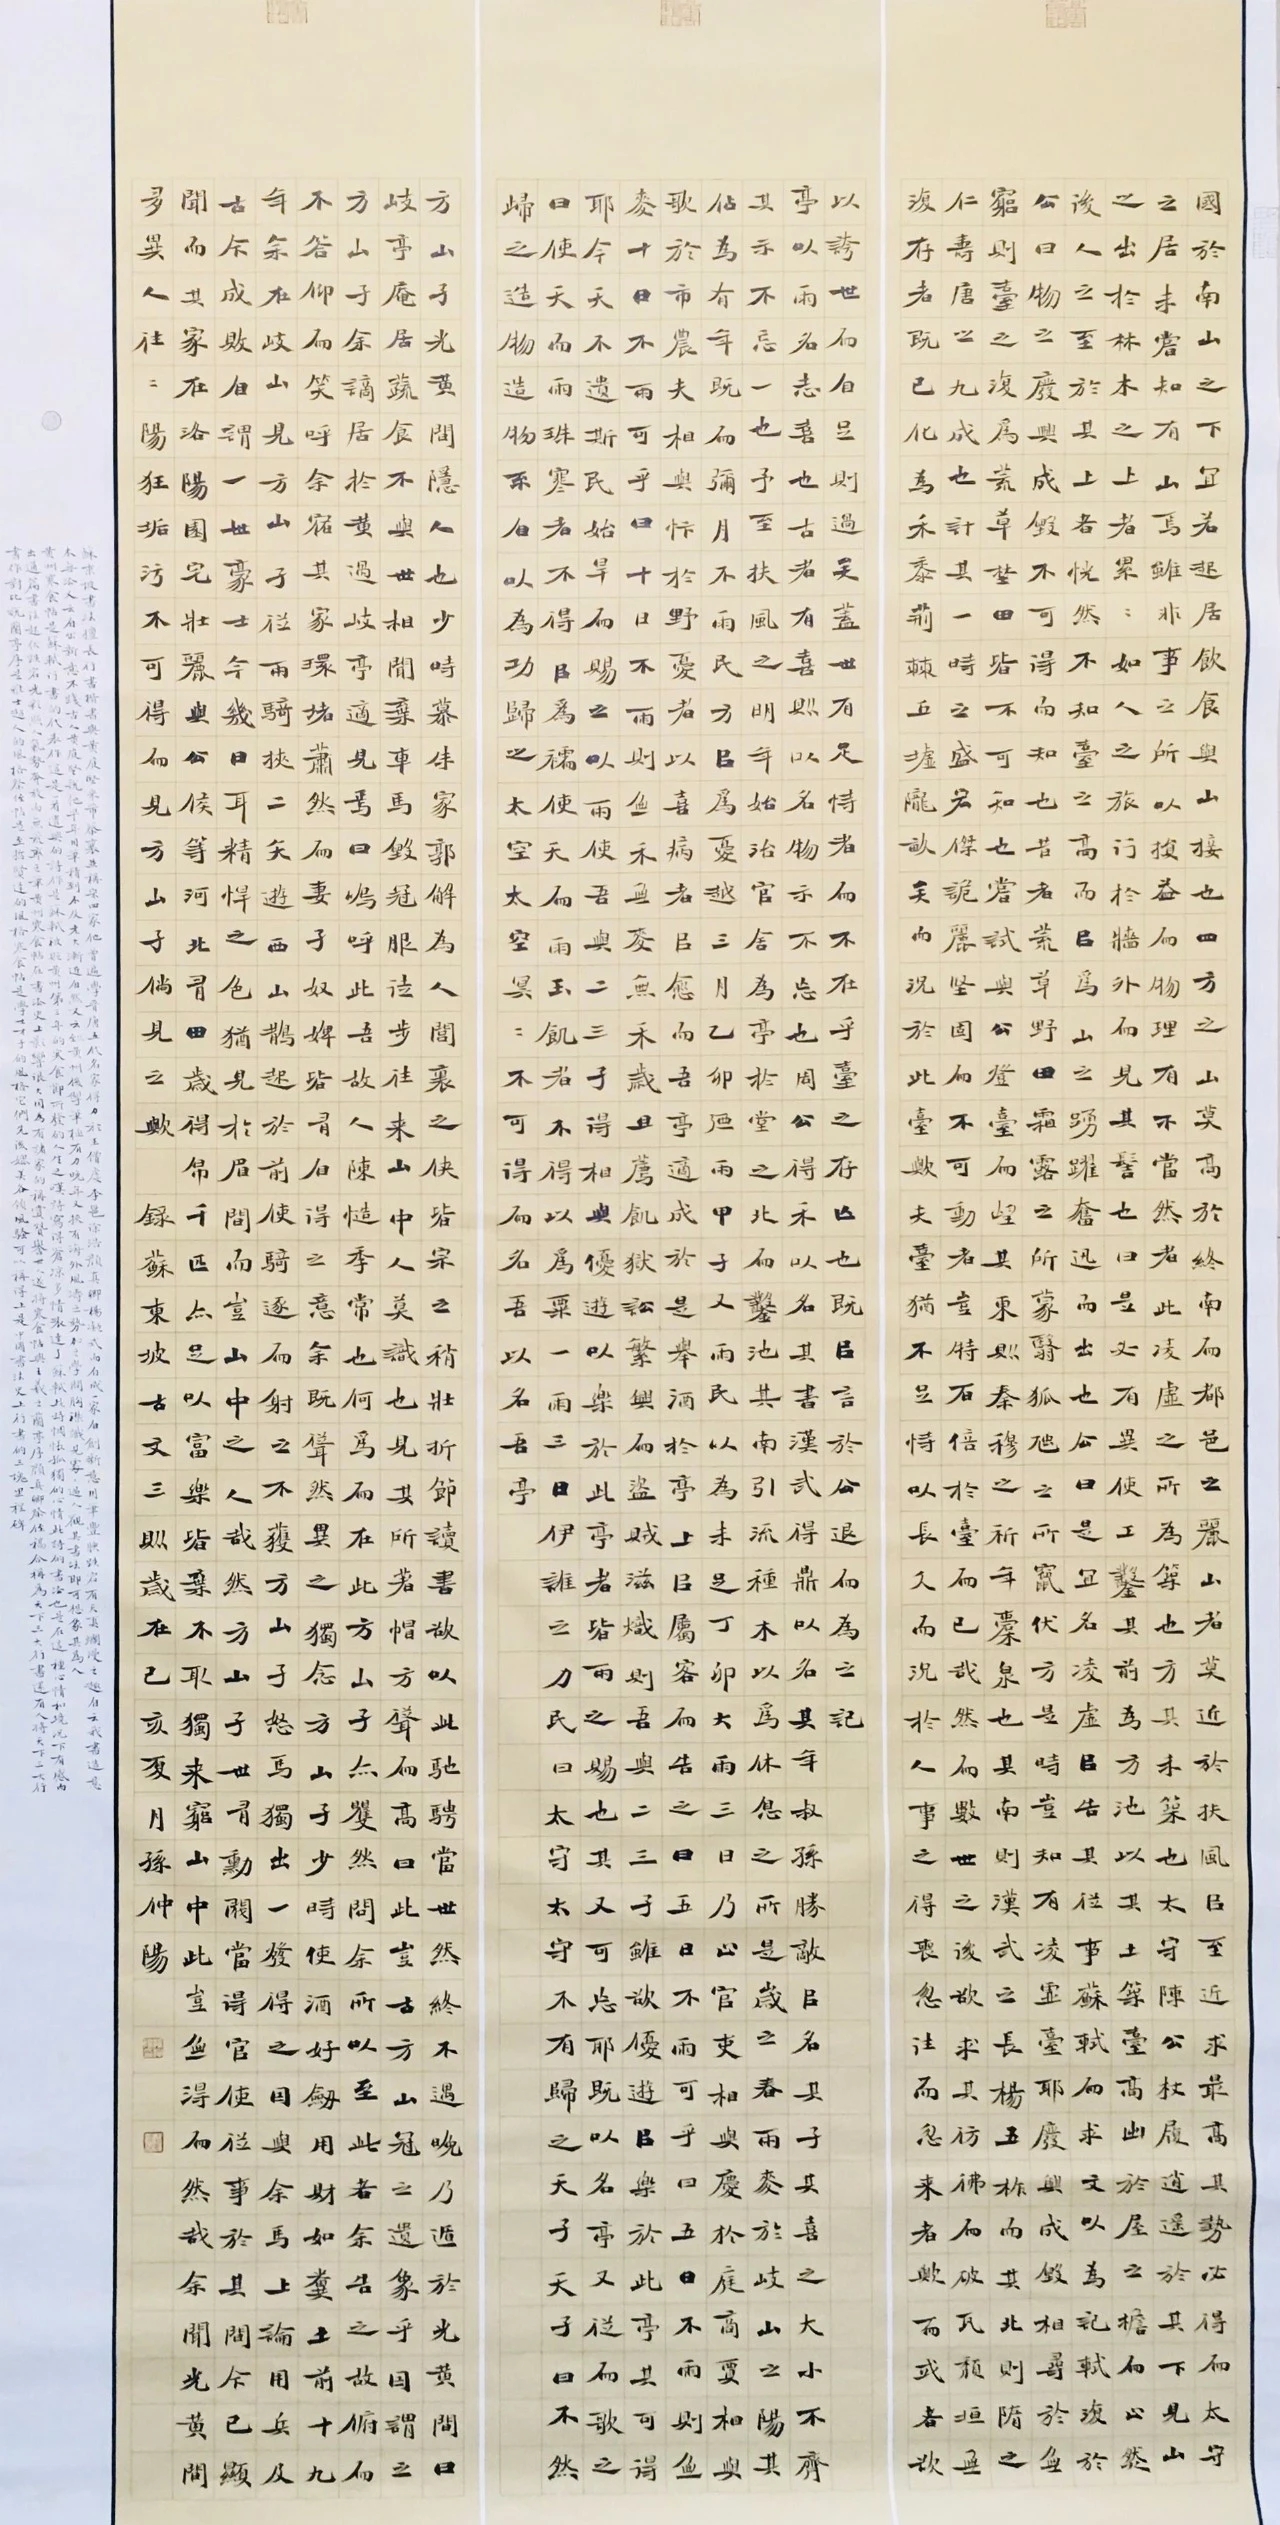 國於南山之下宜若起居飲食與山接也四方之山莫高於終南而都邑之麗山者莫近於扶風以至近求最高其勢必得而太守
之居未嘗知有山焉雖非事之所以損益而物理有不當然者此凌虛之所為築也方其未築也太守陳公杖履逍遙於其下見山
之出於林木之上者累〻如人之旅行於牆外而見其髻也曰是必有異使工鑿其前為方池以其土築臺高出於屋之檐而止然
後人之至於其上者恍然不知臺之高而以為山之踴躍奮迅而出也公曰是宜名凌虛以告其從事蘇軾而求文以為記軾復於
公曰物之廢興成毀不可得而知也昔者荒草野田霜露之所蒙翳狐虺之所竄伏方是時豈知有凌虛臺耶廢興成毀相尋於無
窮則臺之復為荒草野田皆不可知也嘗試與公登臺而望其東則秦穆之祈年橐泉也其南則漢武之長楊五柞而其北則隋之
仁壽唐之九成也計其一時之盛宏傑詭麗堅固而不可動者豈特百倍於臺而已哉然而數世之後欲求其彷彿而破瓦頹垣無
復存者既已化為禾黍荊棘丘墟隴畝矣而況於此臺歟夫臺猶不足恃以長久而況於人事之得喪忽往而忽來者歟而或者欲
以誇世而自足則過矣蓋世有足恃者而不在乎臺之存亡也既以言於公退而為之記
亭以雨名志喜也古者有喜則以名物示不忘也周公得禾以名其書漢武得鼎以名其年叔孫勝敵以名其子其喜之大小不齊
其示不忘一也予至扶風之明年始治官舍為亭於堂之北而鑿池其南引流種木以為休息之所是歲之春雨麥於岐山之陽其
佔為有年既而彌月不雨民方以為憂越三月乙卯乃雨甲子又雨民以為未足丁卯大雨三日乃止官吏相與慶於庭商賈相與
歌於市農夫相與忭於野憂者以喜病者以愈而吾亭適成於是舉酒於亭上以屬客而告之曰五日不雨可乎曰五日不雨則無
麥十日不雨可乎曰十日不雨則無禾無麥無禾歲且薦飢獄訟繁興而盜賊滋熾則吾與二三子雖欲優遊以樂於此亭其可得
耶今天不遺斯民始旱而賜之以雨使吾與二三子得相與優遊以樂於此亭者皆雨之賜也其又可忘耶既以名亭又從而歌之
曰使天而雨珠寒者不得以為襦使天而雨玉飢者不得以為粟一雨三日伊誰之力民曰太守太守不有歸之天子天子曰不然
歸之造物造物不自以為功歸之太空太空冥〻不可得而名吾以名吾亭
方山子光黃間隱人也少時慕朱家郭解為人閭裏之俠皆宗之稍壯折節讀書欲以此馳騁當世然終不遇晚乃遁於光黃間曰
岐亭庵居蔬食不與世相聞棄車馬毀冠服徒步往來山中人莫識也見其所著帽方聳而高曰此豈古方山冠之遺象乎因謂之
方山子余謫居於黃過岐亭適見焉曰嗚呼此吾故人陳慥季常也何為而在此方山子亦矍然問余所以至此者余告之故俯而
不答仰而笑呼余宿其家環堵蕭然而妻子奴婢皆有自得之意余既聳然異之獨念方山子少時使酒好劍用財如糞土前十九
年余在岐山見方山子從兩騎挾二矢遊西山鵲起於前使騎逐而射之不獲方山子怒馬獨出一發得之因與余馬上論用兵及
古今成敗自謂一世豪士今幾日耳精悍之色猶見於眉間而豈山中之人哉然方山子世有勳閥當得官使從事於其間今已顯
聞而其家在洛陽園宅壯麗與公侯等河北有田歲得帛千匹亦足以富樂皆棄不取獨來窮山中此豈無得而然哉余聞光黃間
多異人往〻陽狂垢污不可得而見方山子倘見之歟 錄蘇東坡古文三則歲在己亥夏月孫仲陽